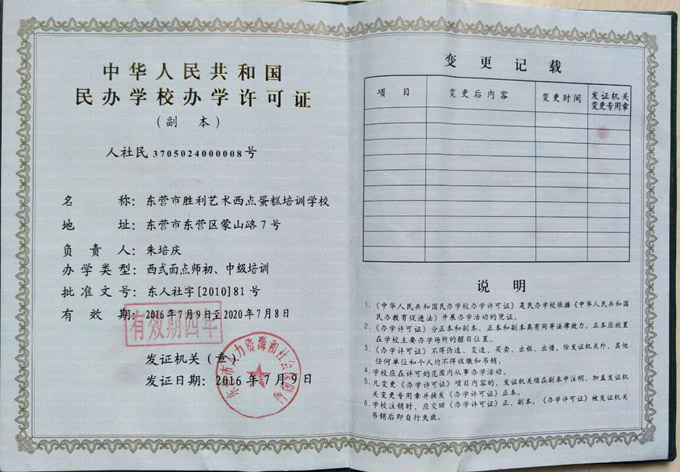 中华人民共和国
民办学校办学许可证
(副 本)
人社民 3705024000008号
名 称：东营市胜利艺术西点蛋糕培训学校
地 址：东营市东营区蒙山路7号
负 责 人：朱培庆
办 学 类 型：西式面点师初、中级培训
批 准 文 号：东人社字[2010]81号
有 效 期：2016年7月9日至2020年7月8日
有效期四年
发证机关（章）
发证日期：2016年7月9日
变更记载
项 目 变更后内容 变更时间 发证机关
变更专用章
说 明
1.《中华人民共和国民办学校办学许可证》是民办学校依据《中华人民共和国民
办教育促进法》开展办学活动的凭证。
2.《办学许可证》分正本和副本，正本和副本具有同等法律效力。正本应放置
在学校主要办学场所的醒目位置。
3.《办学许可证》不得伪造、变造、买卖、出租、出借。除发证机关外，其他
任何单位和个人均不得收缴和吊销。
4.学校应在许可的范围内从事办学活动。
5.凡变更《办学许可证》项目内容的，发证机关须在副本中注明，加盖发证机
关变更专用章并换发《办学许可证》正本。
6.学校注销时，应交回《办学许可证》正、副本，《办学许可证》被发证机关
吊销后即自行失效。